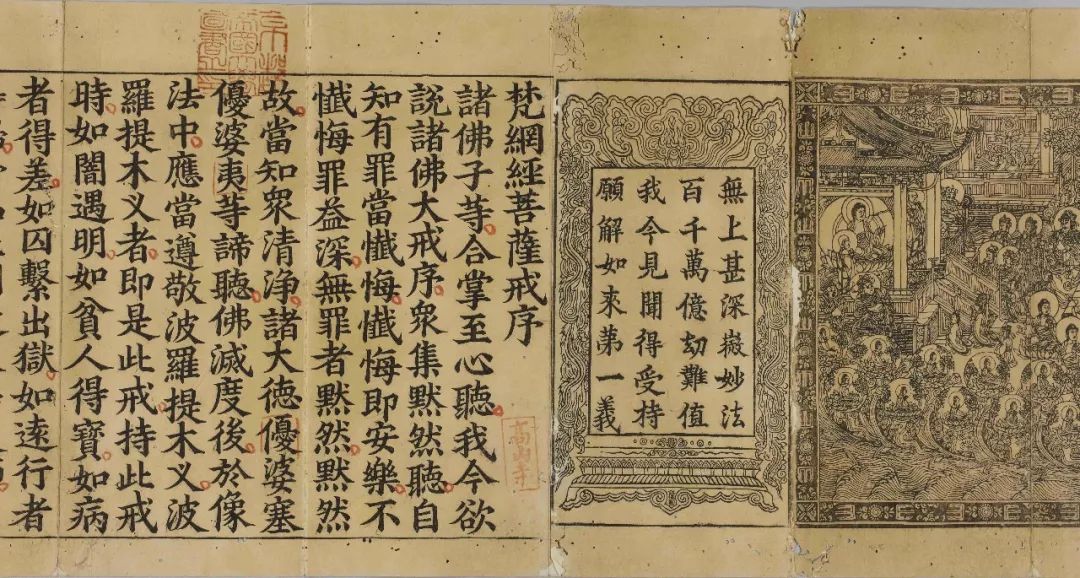 無上甚深微妙法
百千萬億劫難值
我今見聞得受持
願解如來第一義
梵網經菩薩戒序
諸佛子等合掌至心聽我今欲
說諸佛大戒序衆集默然聽自
知有罪當懺悔懺悔即安樂不
懺悔罪益深無罪者默然默然
故當知衆清淨諸大德優婆塞
優婆夷等諦聽佛滅度後於像
法中應當遵敬波羅提木叉波
羅提木叉者即是此戒持此戒
時如闇遇明如貧人得寶如病
者得差如囚繫出獄如遠行者
高山寺